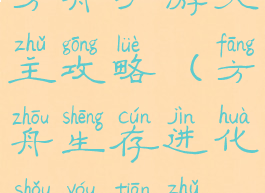 zhǔ gōng lüè fāng
主攻略（方
zhōu shēng cún jìn huà
舟生存进化
shǒu yóu tiān zhǔ